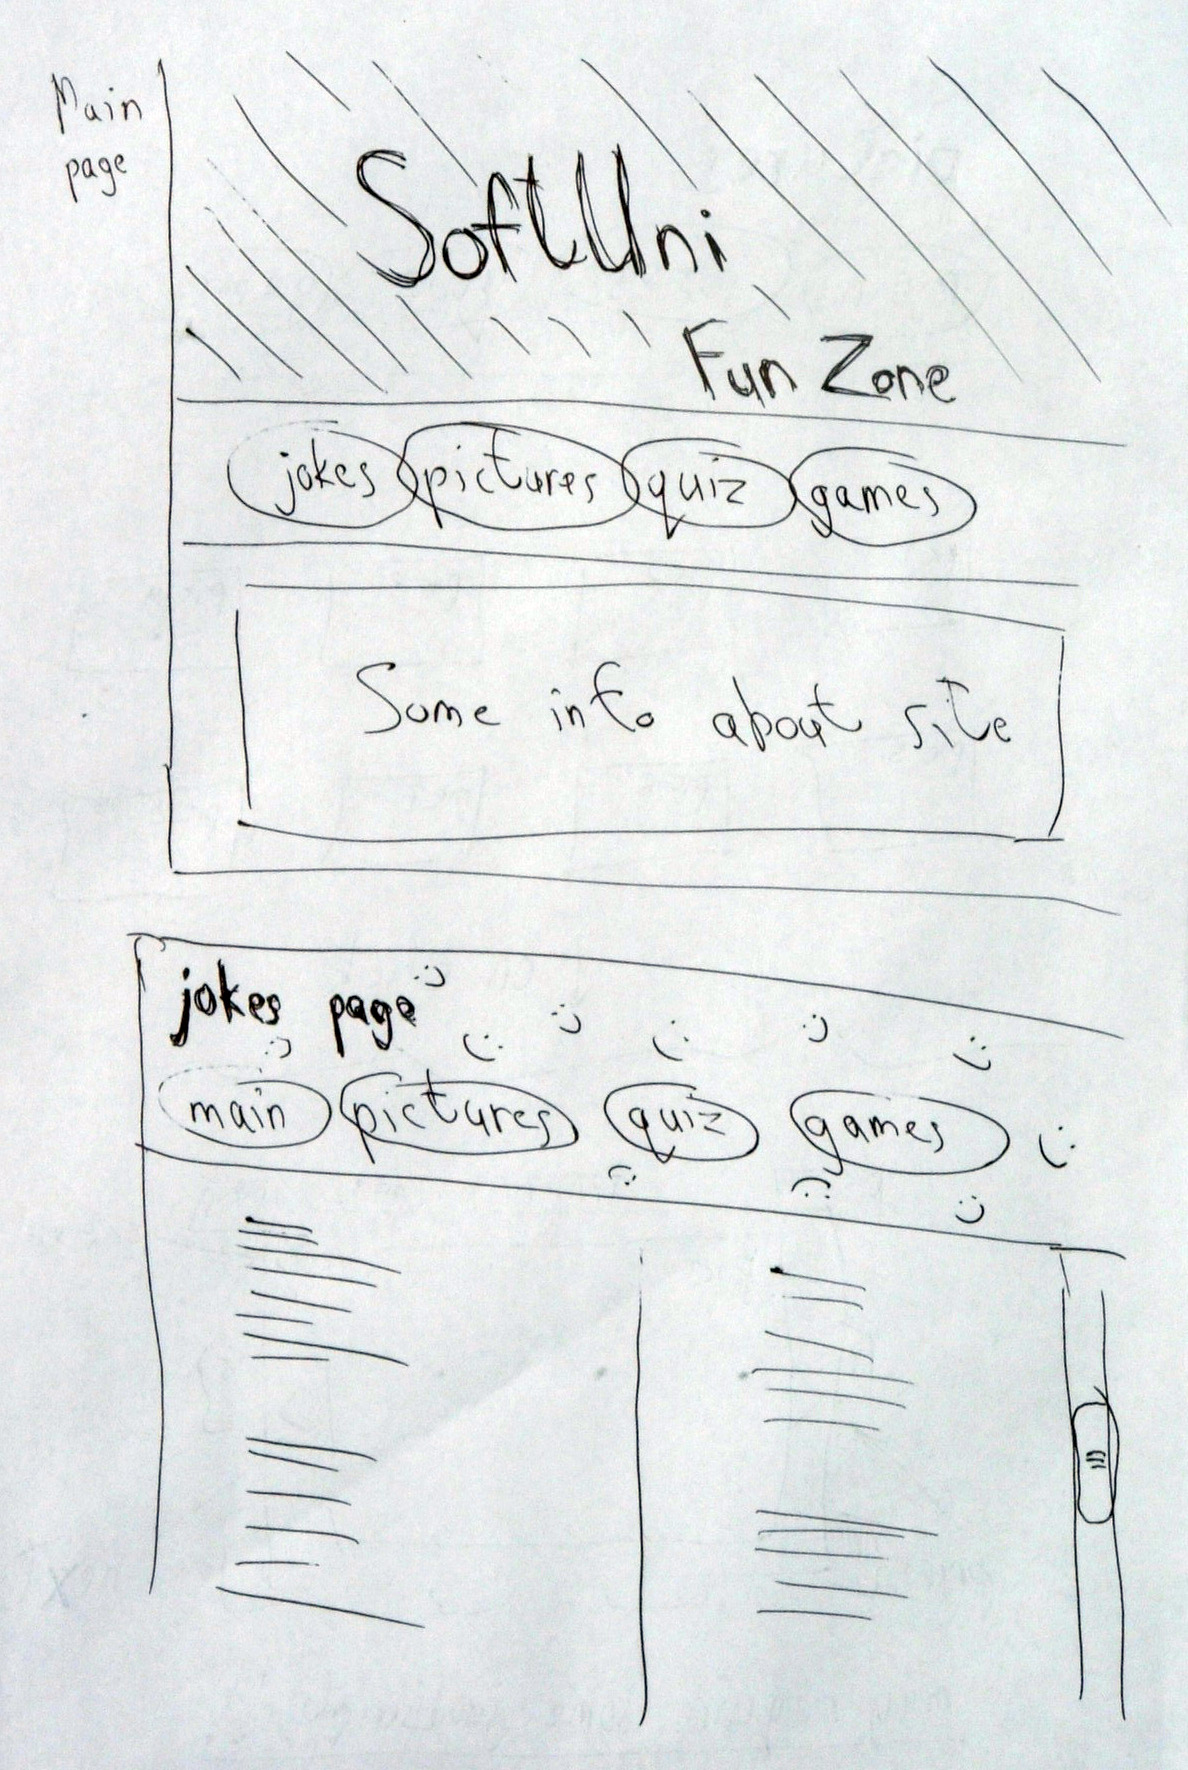 Main
page
SoftUni
Fun Zone
jokes pictures quiz games
Some info about site
jokes page
main pictures quiz games